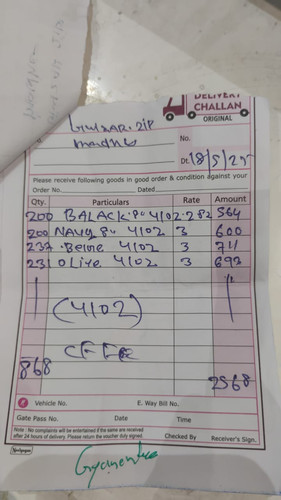 DELIVERY
CHALLAN
ORIGINAL
No.
Dt. 18/5/25
Please receive following goods in good order & condition against your
Order No. Dated
Qty. Particulars Rate Amount
200 BALACK 4102 2.82 564
200 NAVY 4102 3 600
237 4102 3 711
231 OLIVE 4102 3 693
(4102)
868 2568
Vehicle No. E. Way Bill No.
Gate Pass No. Date Time
Note : No complaints will be entertained if the same are received
after 24 hours of delivery. Please return the voucher duly signed.
Checked By Receiver's Sign.